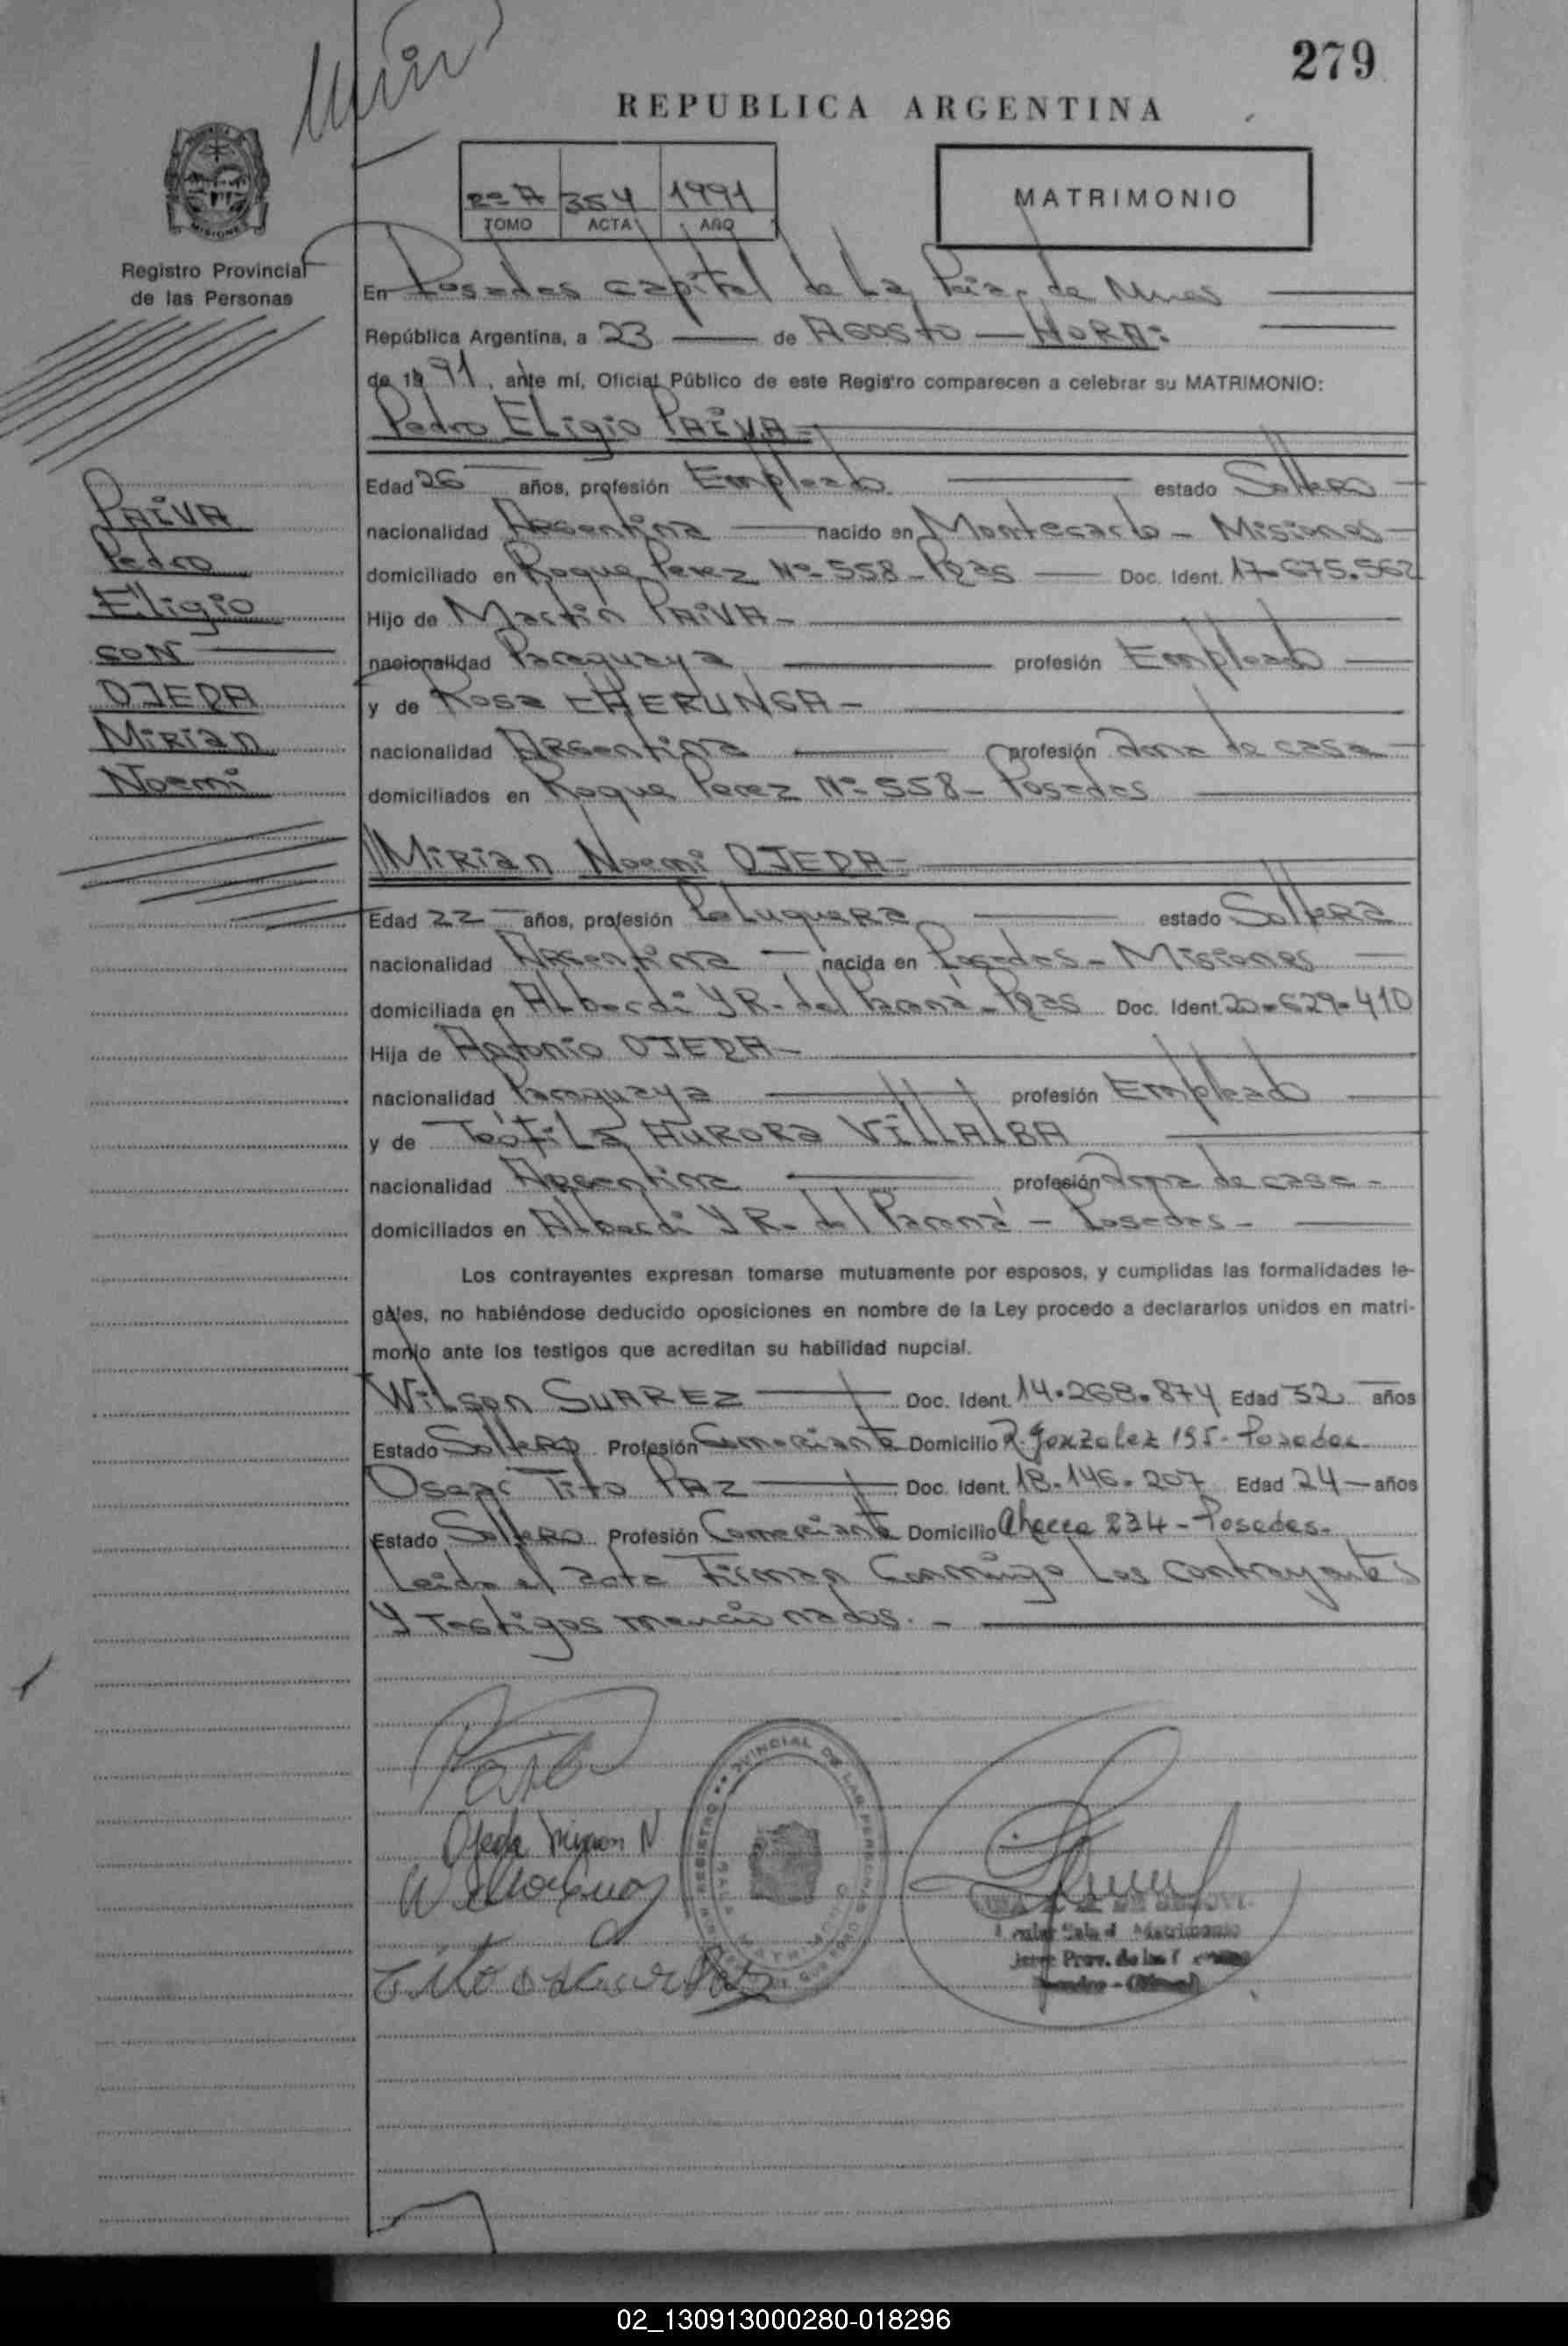 279
REPUBLICA ARGENTINA
2º A 354 1991
TOMO ACTA AÑO
MATRIMONIO
Registro Provincial
de las Personas
En Posadas capital de La Pcia. de Mnes
República Argentina, a 23 de Agosto - HORA:
de 1991, ante mí, Oficial Público de este Registro comparecen a celebrar su MATRIMONIO:
Pedro Eligio PAIVA-
Edad 26 años, profesión Empleado estado Soltero
nacionalidad Argentina nacido en Montecarlo - Misiones
domiciliado en Roque Perez Nº 558 - Pdas Doc. Ident. 17.675.562
Hijo de Martin PAIVA-
nacionalidad Paraguaya profesión Empleado
y de Rosa CHERUNGA-
nacionalidad Argentina profesión Ama de casa
domiciliados en Roque Perez Nº 558 - Posadas
PAIVA
Pedro
Eligio
CON
OJEDA
Mirian
Noemi
Mirian Noemi OJEDA-
Edad 22 años, profesión Peluquera estado Soltera
nacionalidad Argentina nacida en Posadas - Misiones
domiciliada en Alberdi Y R. del Paraná - Pdas Doc. Ident. 20.629.410
Hija de Antonio OJEDA-
nacionalidad Paraguaya profesión Empleado
y de Teófila AURORA VILLALBA
nacionalidad Argentina profesión Ama de casa -
domiciliados en Alberdi Y R. del Paraná - Posadas -
Los contrayentes expresan tomarse mutuamente por esposos, y cumplidas las formalidades le-
gales, no habiéndose deducido oposiciones en nombre de la Ley procedo a declararlos unidos en matri-
monio ante los testigos que acreditan su habilidad nupcial.
Wilson SUAREZ Doc. Ident. 14.268.874 Edad 32 años
Estado Soltero Profesión Comerciante Domicilio R. Gonzalez 195 - Posadas
Oscar Tito PAZ Doc. Ident. 18.146.207 Edad 24 años
Estado Soltero Profesión Comerciante Domicilio Chacra 234 - Posadas -
Leida el acta Firman Conmigo Los contrayentes
Y Testigos mencionados. -
Ojeda Mirian N
Tito oscar Paz
02_130913000280-018296